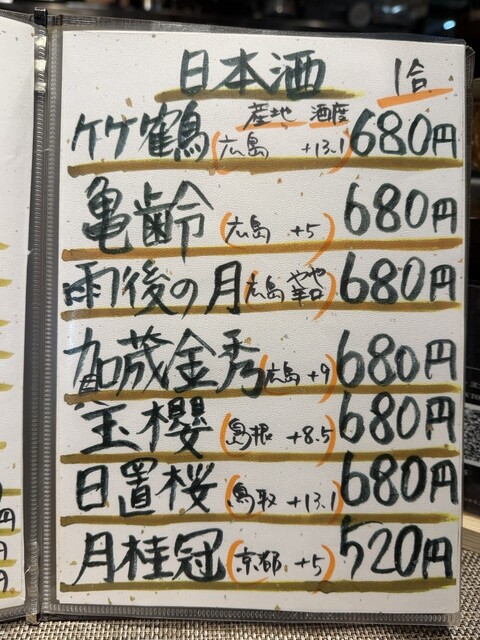 日本酒 1合
産地 酒度
竹鶴 (広島 +13.1) 680円
亀齢 (広島 +5) 680円
雨後の月 (広島 やや辛口) 680円
加茂金秀 (広島 +9) 680円
玉櫻 (島根 +8.5) 680円
日置桜 (鳥取 +13.1) 680円
月桂冠 (京都 +5) 520円
円
円
円